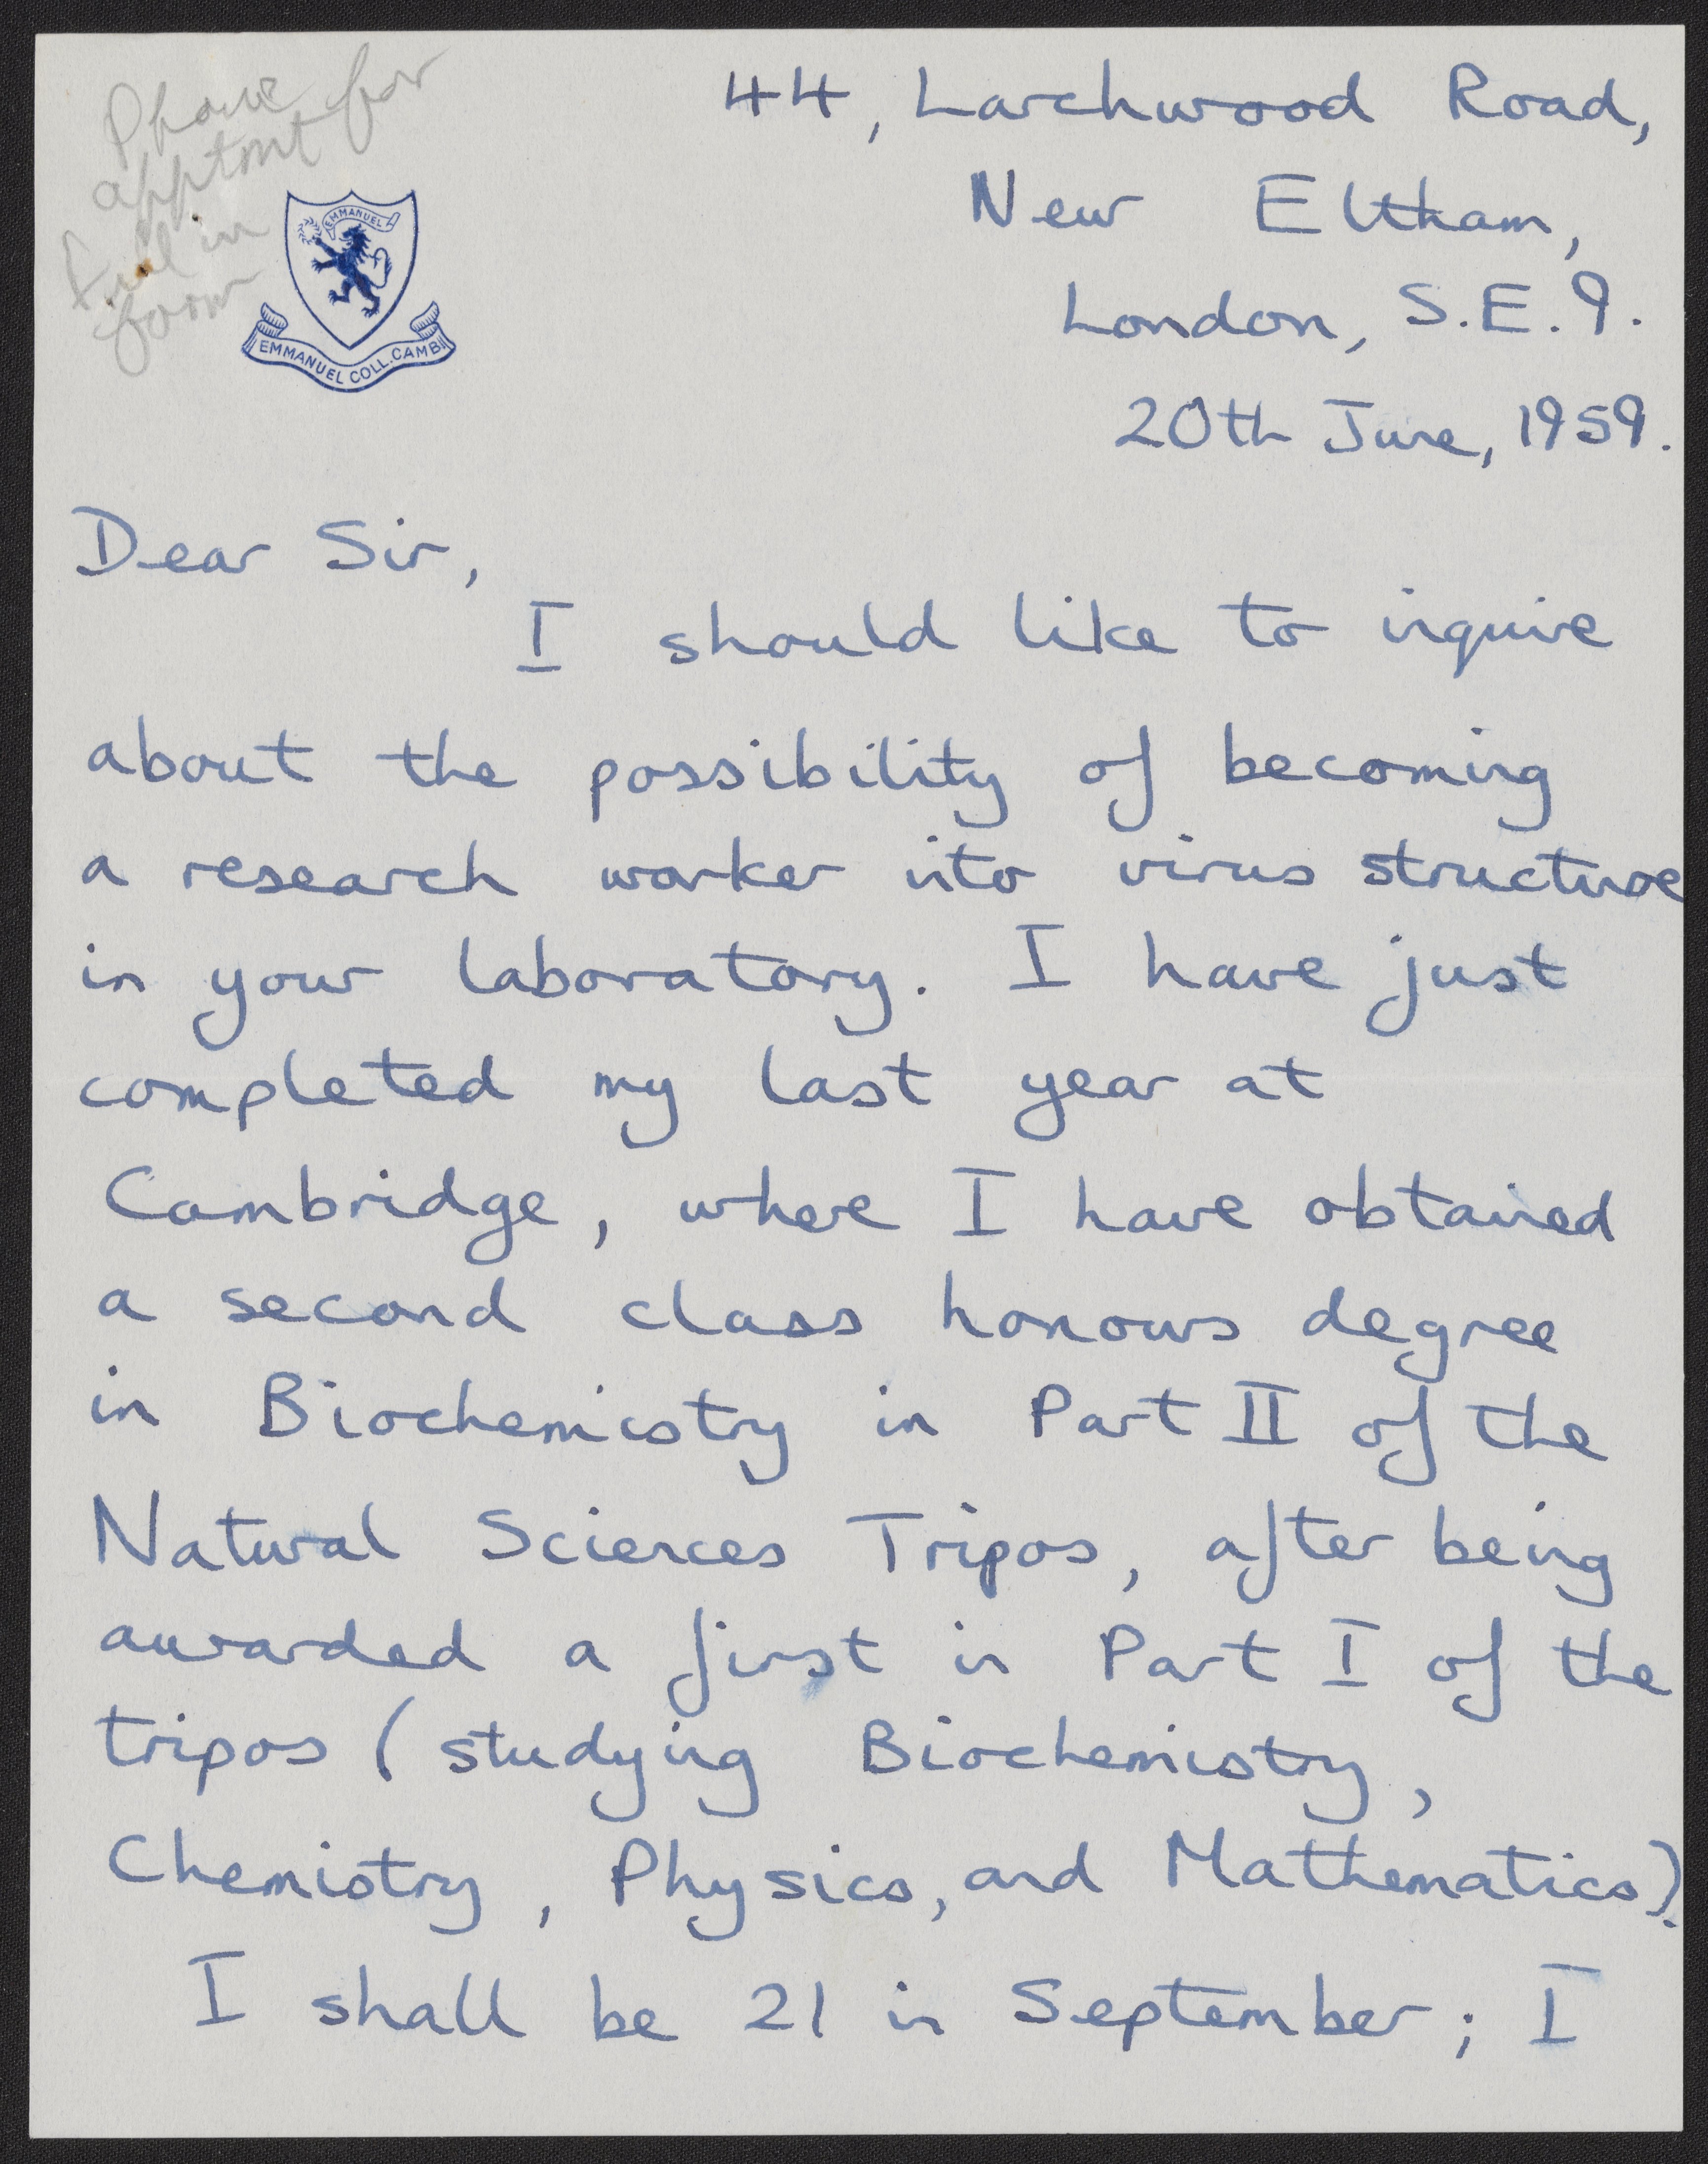 Phone for
apptmt
Fill in
form
EMMANUEL
EMMANUEL COLL. CAMB.
44, Larchwood Road,
New Eltham,
London, S.E.9.
20th June, 1959.
Dear Sir,
I should like to inquire
about the possibility of becoming
a research worker into virus structure
in your laboratory. I have just
completed my last year at
Cambridge, where I have obtained
a second class honours degree
in Biochemistry in Part II of the
Natural Sciences Tripos, after being
awarded a first in Part I of the
tripos (studying Biochemistry,
Chemistry, Physics, and Mathematics).
I shall be 21 in September; I